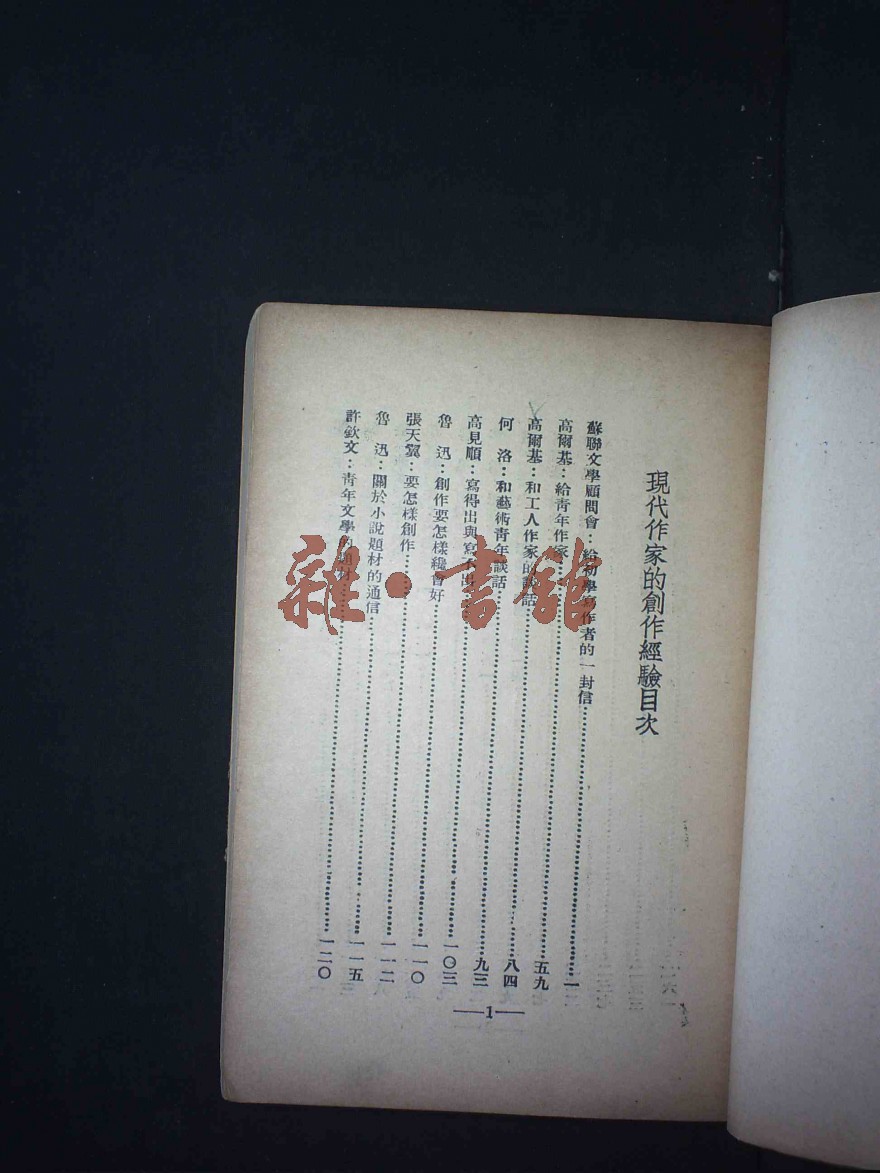 現代作家的創作經驗目次
蘇聯文學顧問會：給初學寫作者的一封信……一
高爾基：給青年作家……五九
高爾基：和工人作家的談話……八四
何洛：和藝術青年談話……九三
高見順：寫得出與寫不出……一〇三
魯迅：創作要怎樣纔會好……一一〇
張天翼：要怎樣創作……一一二
魯迅：關於小說題材的通信……一一五
許欽文：青年文學的題材……一二〇
—1—
雜·書館